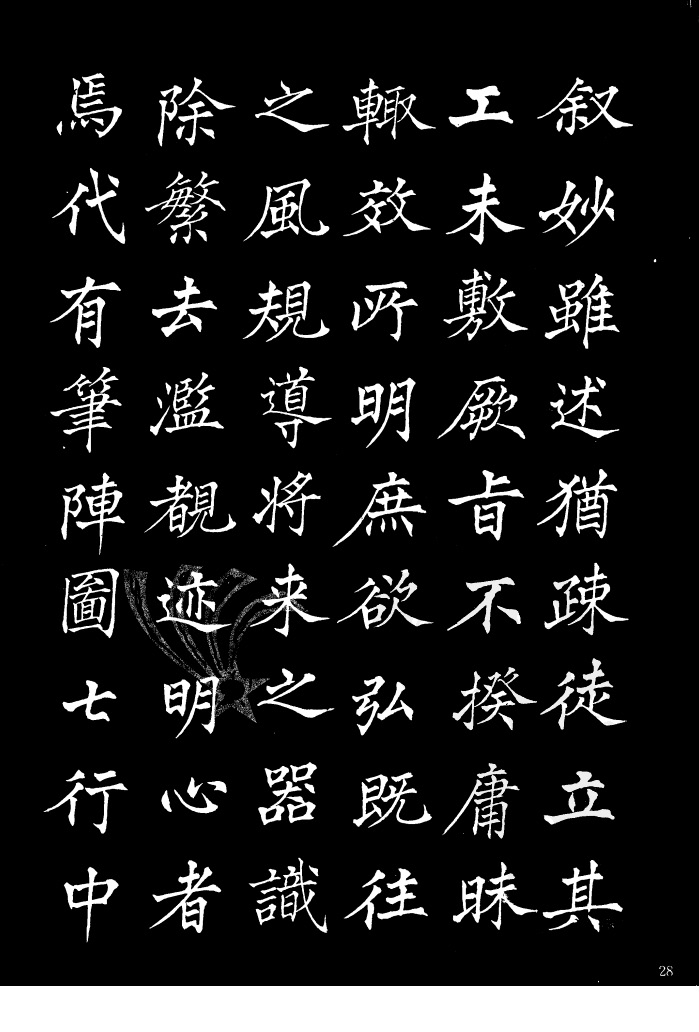 叙妙雖述猶疎徒立其
工未敷厥旨不揆庸昧
輙效所明庶欲弘既往
之風規導將来之器識
除繁去濫覩迹明心者
焉代有筆陣圖七行中
28